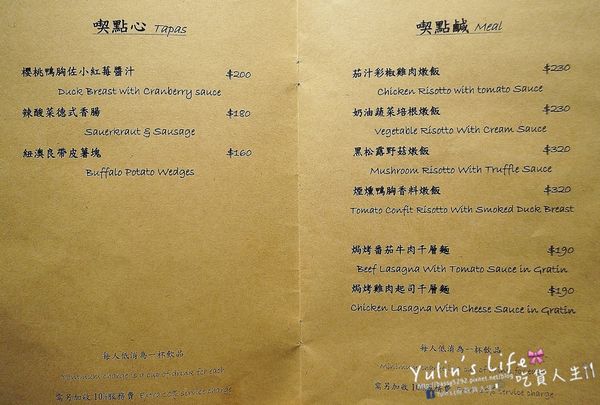 喫點心 Tapas
櫻桃鴨胸佐小紅莓醬汁 $200
Duck Breast with Cranberry sauce
辣酸菜德式香腸 $180
Sauerkraut & Sausage
紐澳良帶皮薯塊 $160
Buffalo Potato Wedges
每人低消為一杯飲品
Minimum charge is a cup of drink for each
需另加收10%服務費 Extra 10% service charge
喫點鹹 Meal
茄汁彩椒雞肉燉飯 $230
Chicken Risotto with tomato Sauce
奶油蔬菜培根燉飯 $230
Vegetable Risotto With Cream Sauce
黑松露野菇燉飯 $320
Mushroom Risotto With Truffle Sauce
煙燻鴨胸香料燉飯 $320
Tomato Confit Risotto With Smoked Duck Breast
焗烤番茄牛肉千層麵 $190
Beef Lasagna With Tomato Sauce in Gratin
焗烤雞肉起司千層麵 $190
Chicken Lasagna With Cheese Sauce in Gratin
每人低消為一杯飲品
需另加收10%服務費
service charge
Yulin's Life
吃貨人生!!